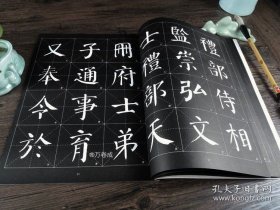 禮部侍相
監崇弘文
士禮部天
冊府士弟
子通事育
又奉令於
®万卷成
孔夫子旧书网